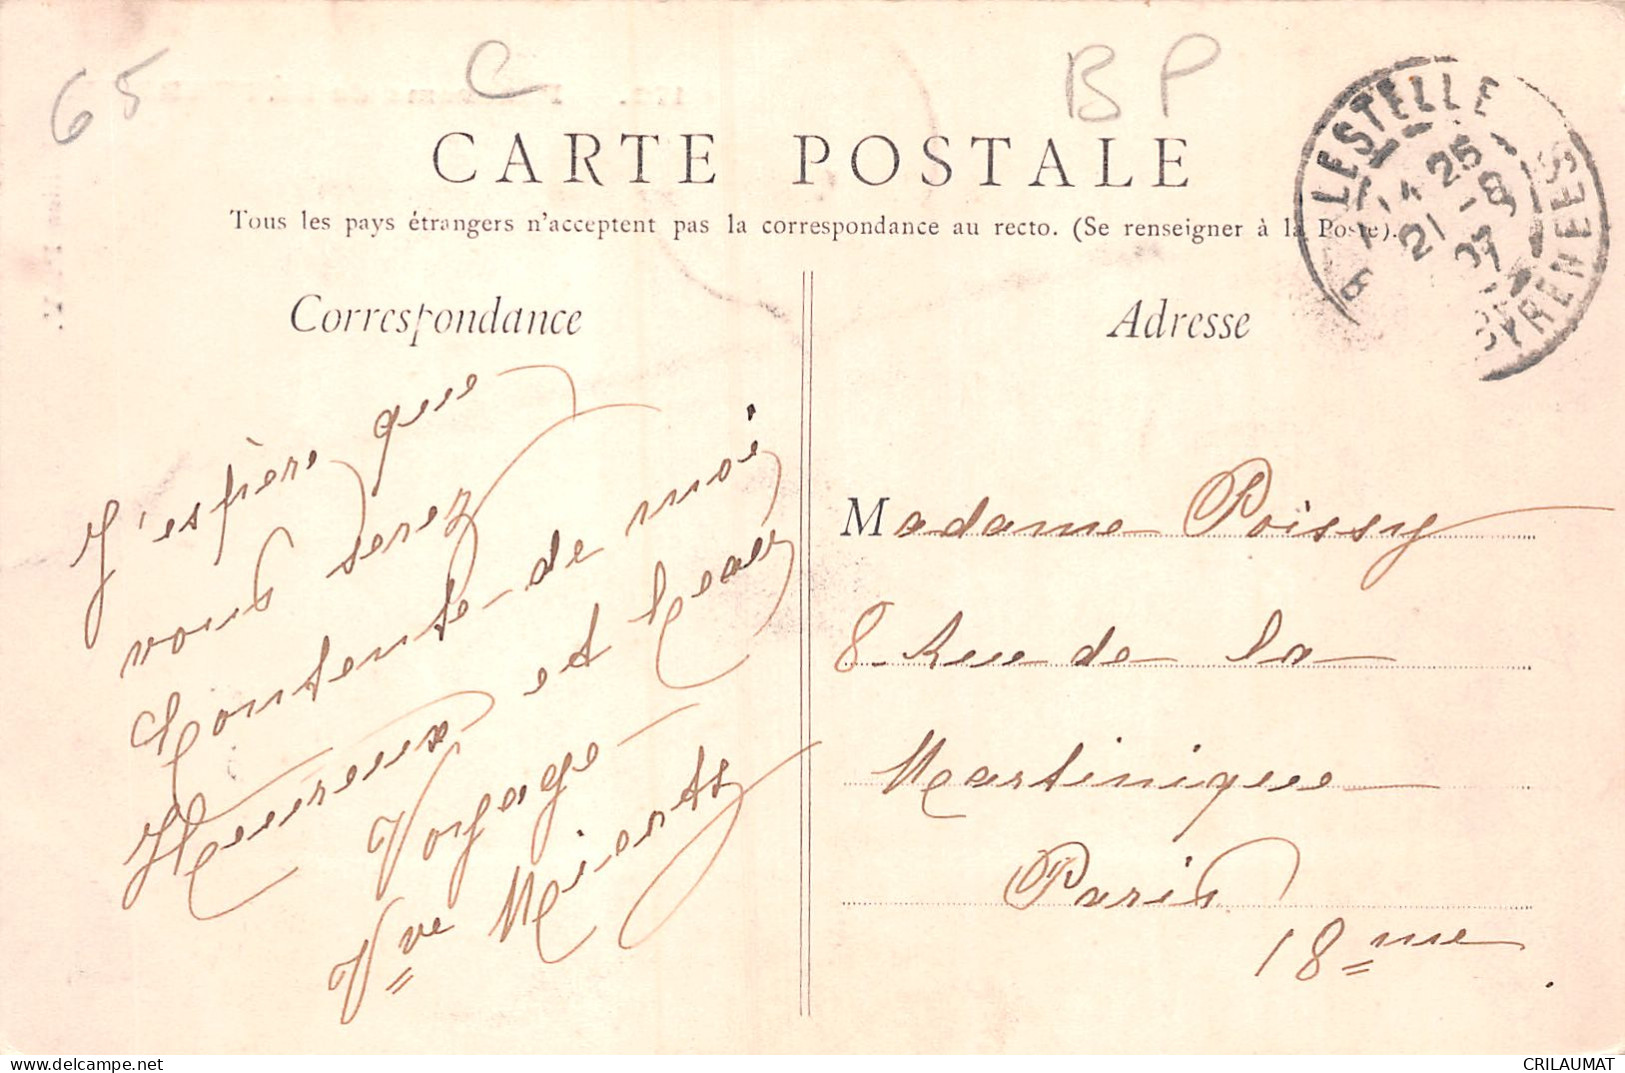 65
C
B P
CARTE POSTALE
Tous les pays étrangers n'acceptent pas la correspondance au recto. (Se renseigner à la Poste).
LESTELLE
21 -8
PYRENEES
Correspondance
J'espère que
vous serez
Contente de moi
Heureux et beau
Voyage
Vve
Adresse
Madame Poissy
8 Rue de la
Martinique
Paris
18 me
CRILAUMAT